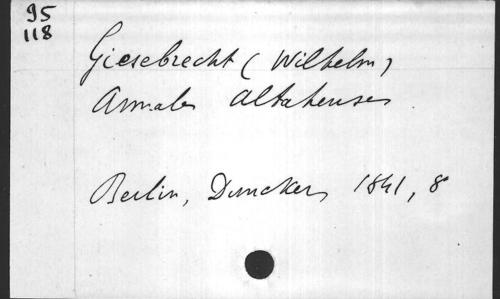 95
118
Giesebrecht (Wilhelm)
Annales Altahenses
Berlin, Duncker, 1841, 8